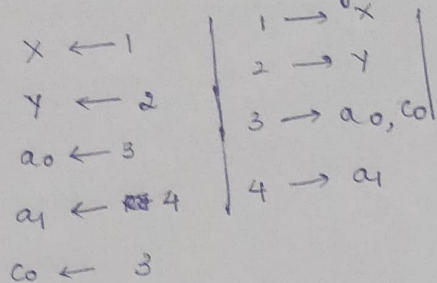 X ← 1
Y ← 2
a0 ← 3
a1 ← 4
c0 ← 3
1 → X
2 → Y
3 → a0, c0
4 → a1